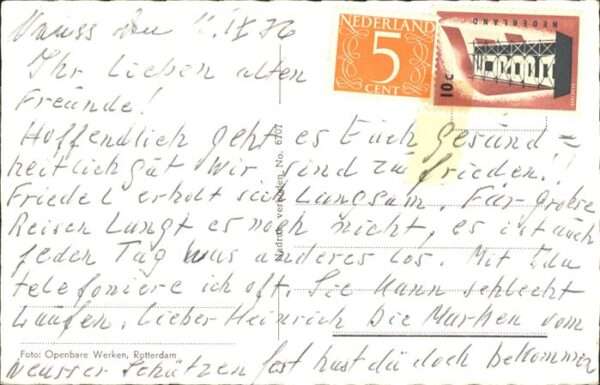 Neuss den 11.IX 76
Ihr Lieben alten
Freunde!
Hoffendlich geht es Euch gesund=
heitlich gut wir sind zufrieden!!
Friedel erholt sich Langsam. Für große
Reisen Langt es noch nicht, es ist auch
jeden Tag was anderes los. Mit Edu
telefoniere ich oft. Sie kann schlecht
Laufen. Lieber Heinrich Die Marken vom
neusser Schützenfest hast du doch bekommen
NEDERLAND
5
CENT
NEDERLAND
10 c
EUROPA
Nadruk verboden No. 6707
Foto: Openbare Werken, Rotterdam